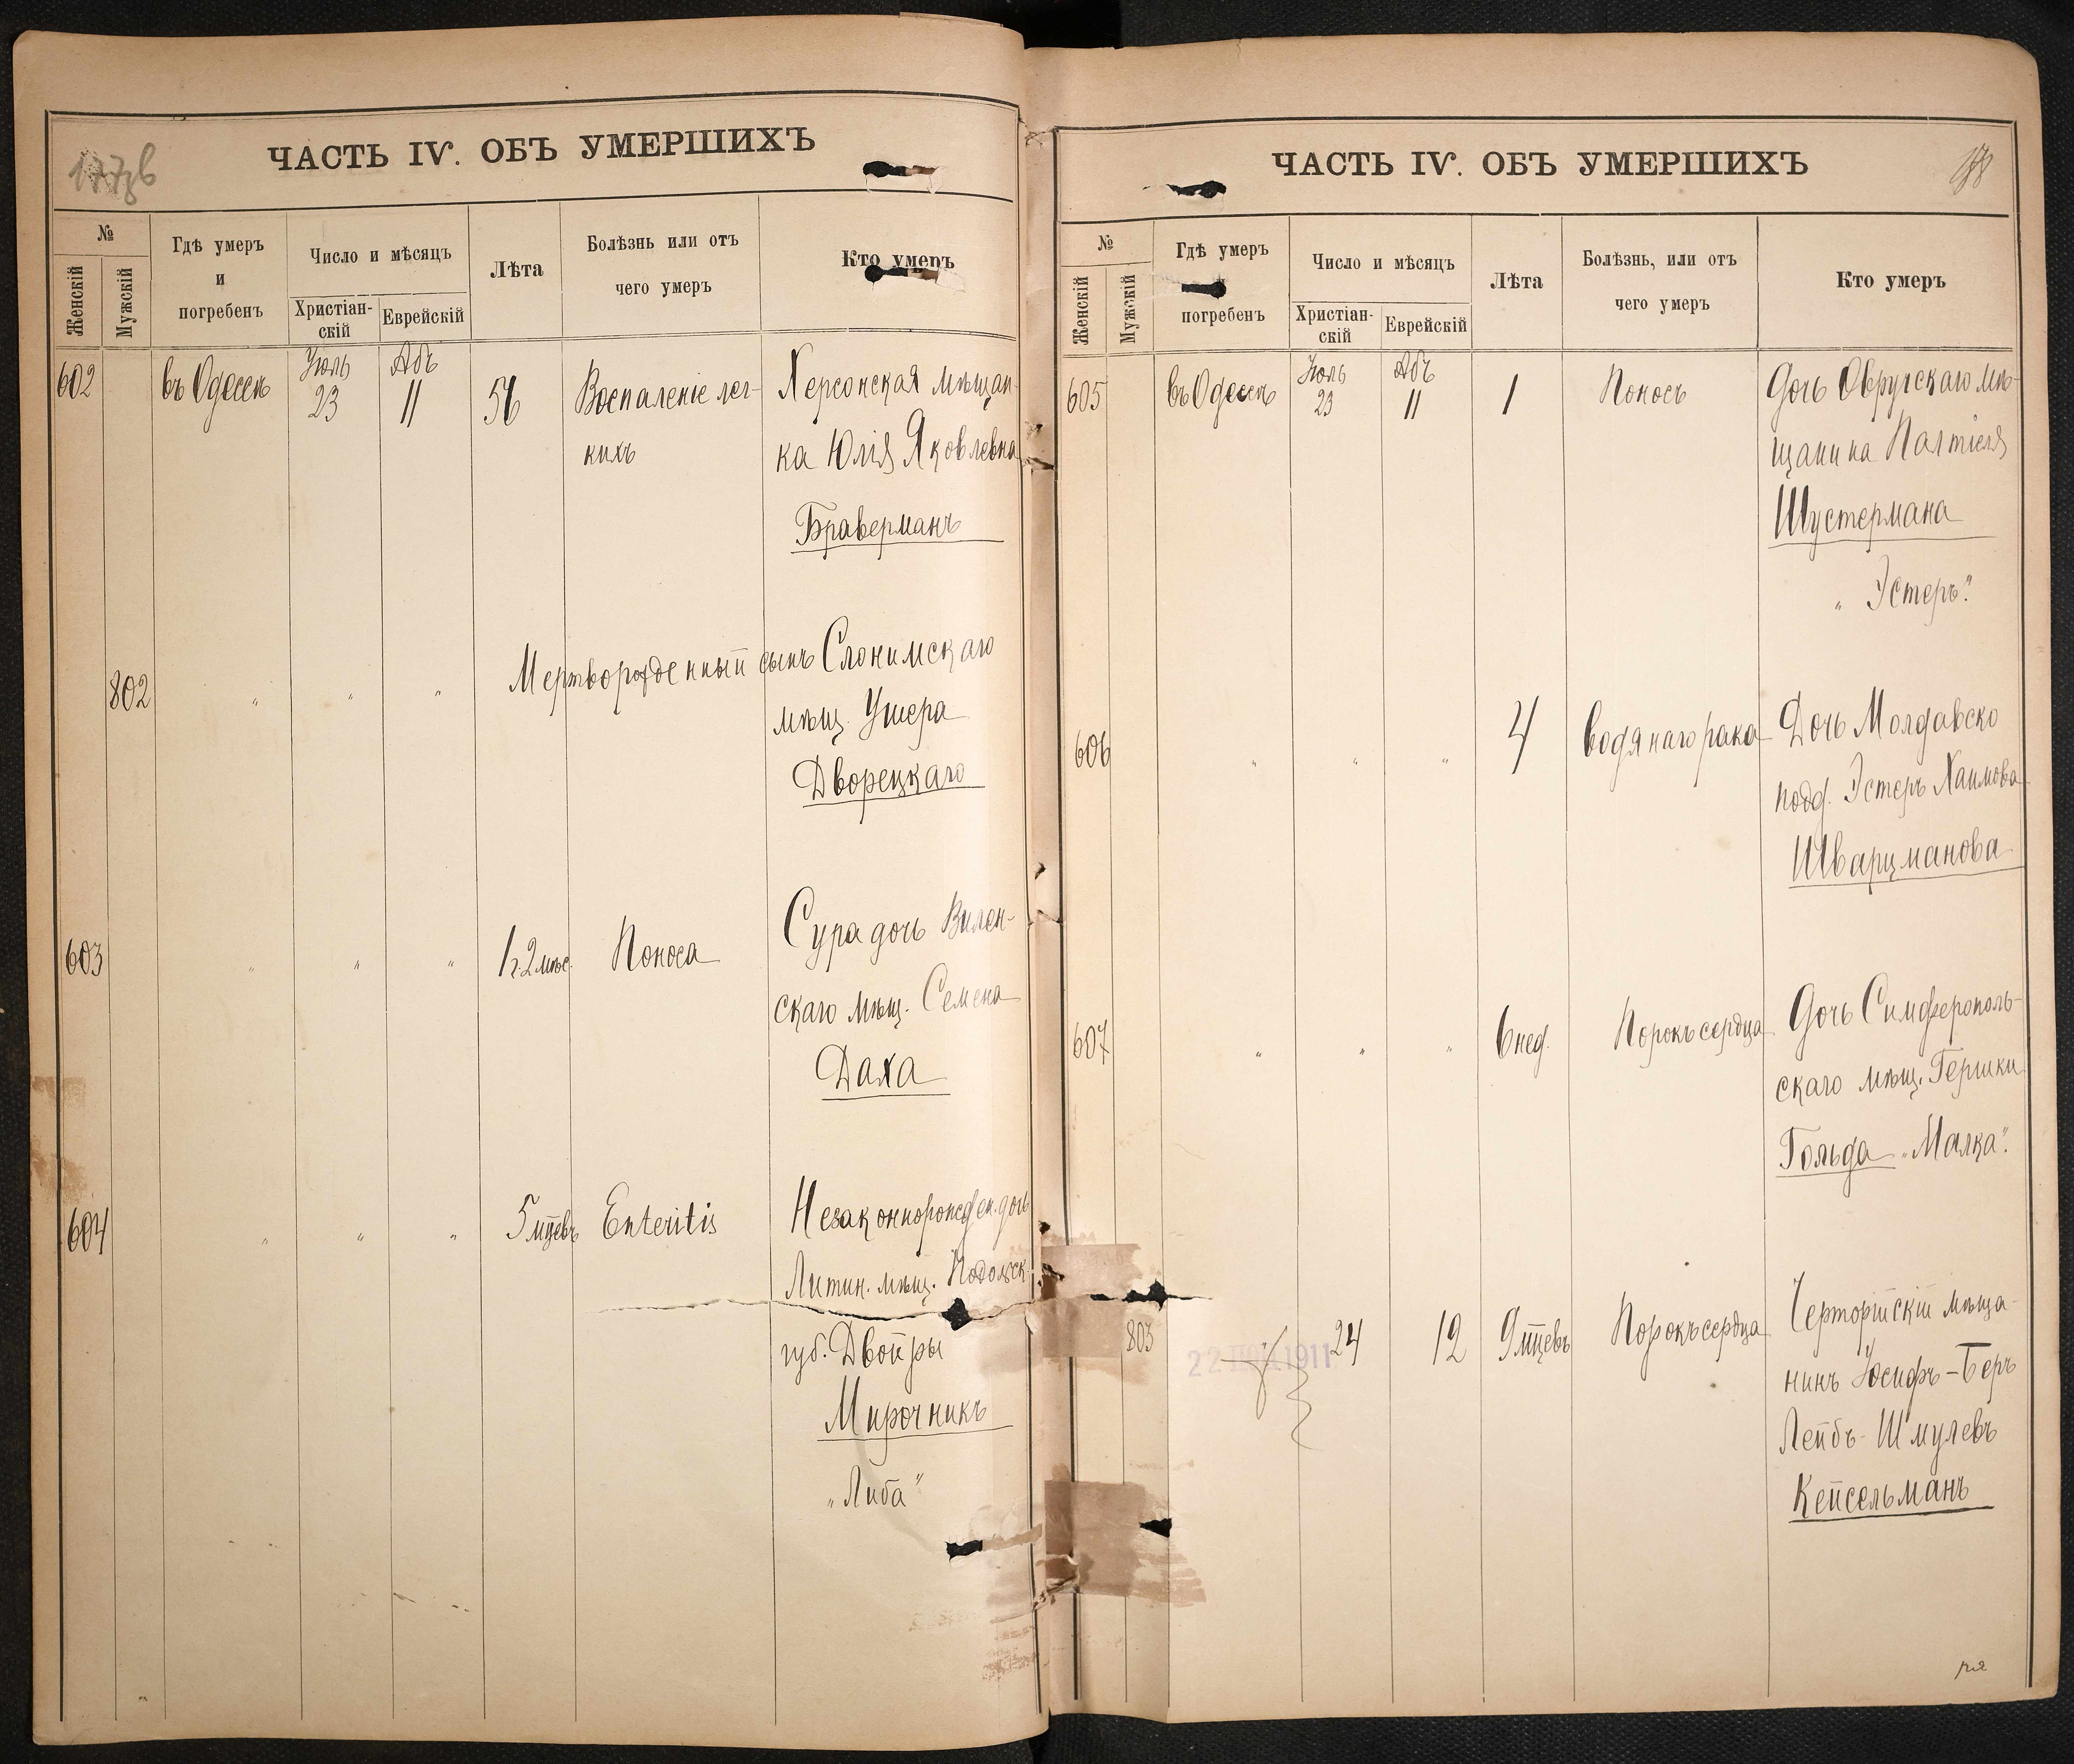 177об
ЧАСТЬ IV. ОБЪ УМЕРШИХЪ
№
Женскій
Мужскій
Гдѣ умеръ
и
погребенъ
Число и мѣсяцъ
Христіан-
скій
Еврейскій
Лѣта
Болѣзнь или отъ
чего умеръ
Кто умеръ
602 въ Одессѣ Іюль 23 Абъ 11 56 Воспаленіе лег- Херсонская мѣщан-
кихъ ка Юлія Яковлевна
Браверманъ
802 " " " Мертворожденный сынъ Слонимскаго
мѣщ. Ушера
Дворецкаго
603 " " " 1 г. 2 мѣс. Поноса Сура дочь Вилен-
скаго мѣщ. Семена
Даха
604 " " " 5 мцевъ Enteritis Незаконнорожден. дочь
Литин. мѣщ. Подольск.
губ. Двойры
Мирочникъ
"Либа"
178
ЧАСТЬ IV. ОБЪ УМЕРШИХЪ
№
Женскій
Мужскій
Гдѣ умеръ
погребенъ
Число и мѣсяцъ
Христіан-
скій
Еврейскій
Лѣта
Болѣзнь, или отъ
чего умеръ
Кто умеръ
605 въ Одессѣ Іюль 23 Абъ 11 1 Поносъ Дочь Овручскаго мѣ-
щанина Палтіеля
Шустермана
"Эстеръ".
606 " " " 4 водянаго рака Дочь Молдавско
подд. Эстеръ Хаимова
Шварцманова
607 " " " 6 нед. Порокъ сердца Дочь Симферополь-
скаго мѣщ. Гершки
Гольда "Малка".
803 22 1911 24 12 9 мцевъ Порокъ сердца Чарторійскій мѣща-
нинъ Іосифъ-Беръ
Лейбъ-Шмулевъ
Кейсельманъ